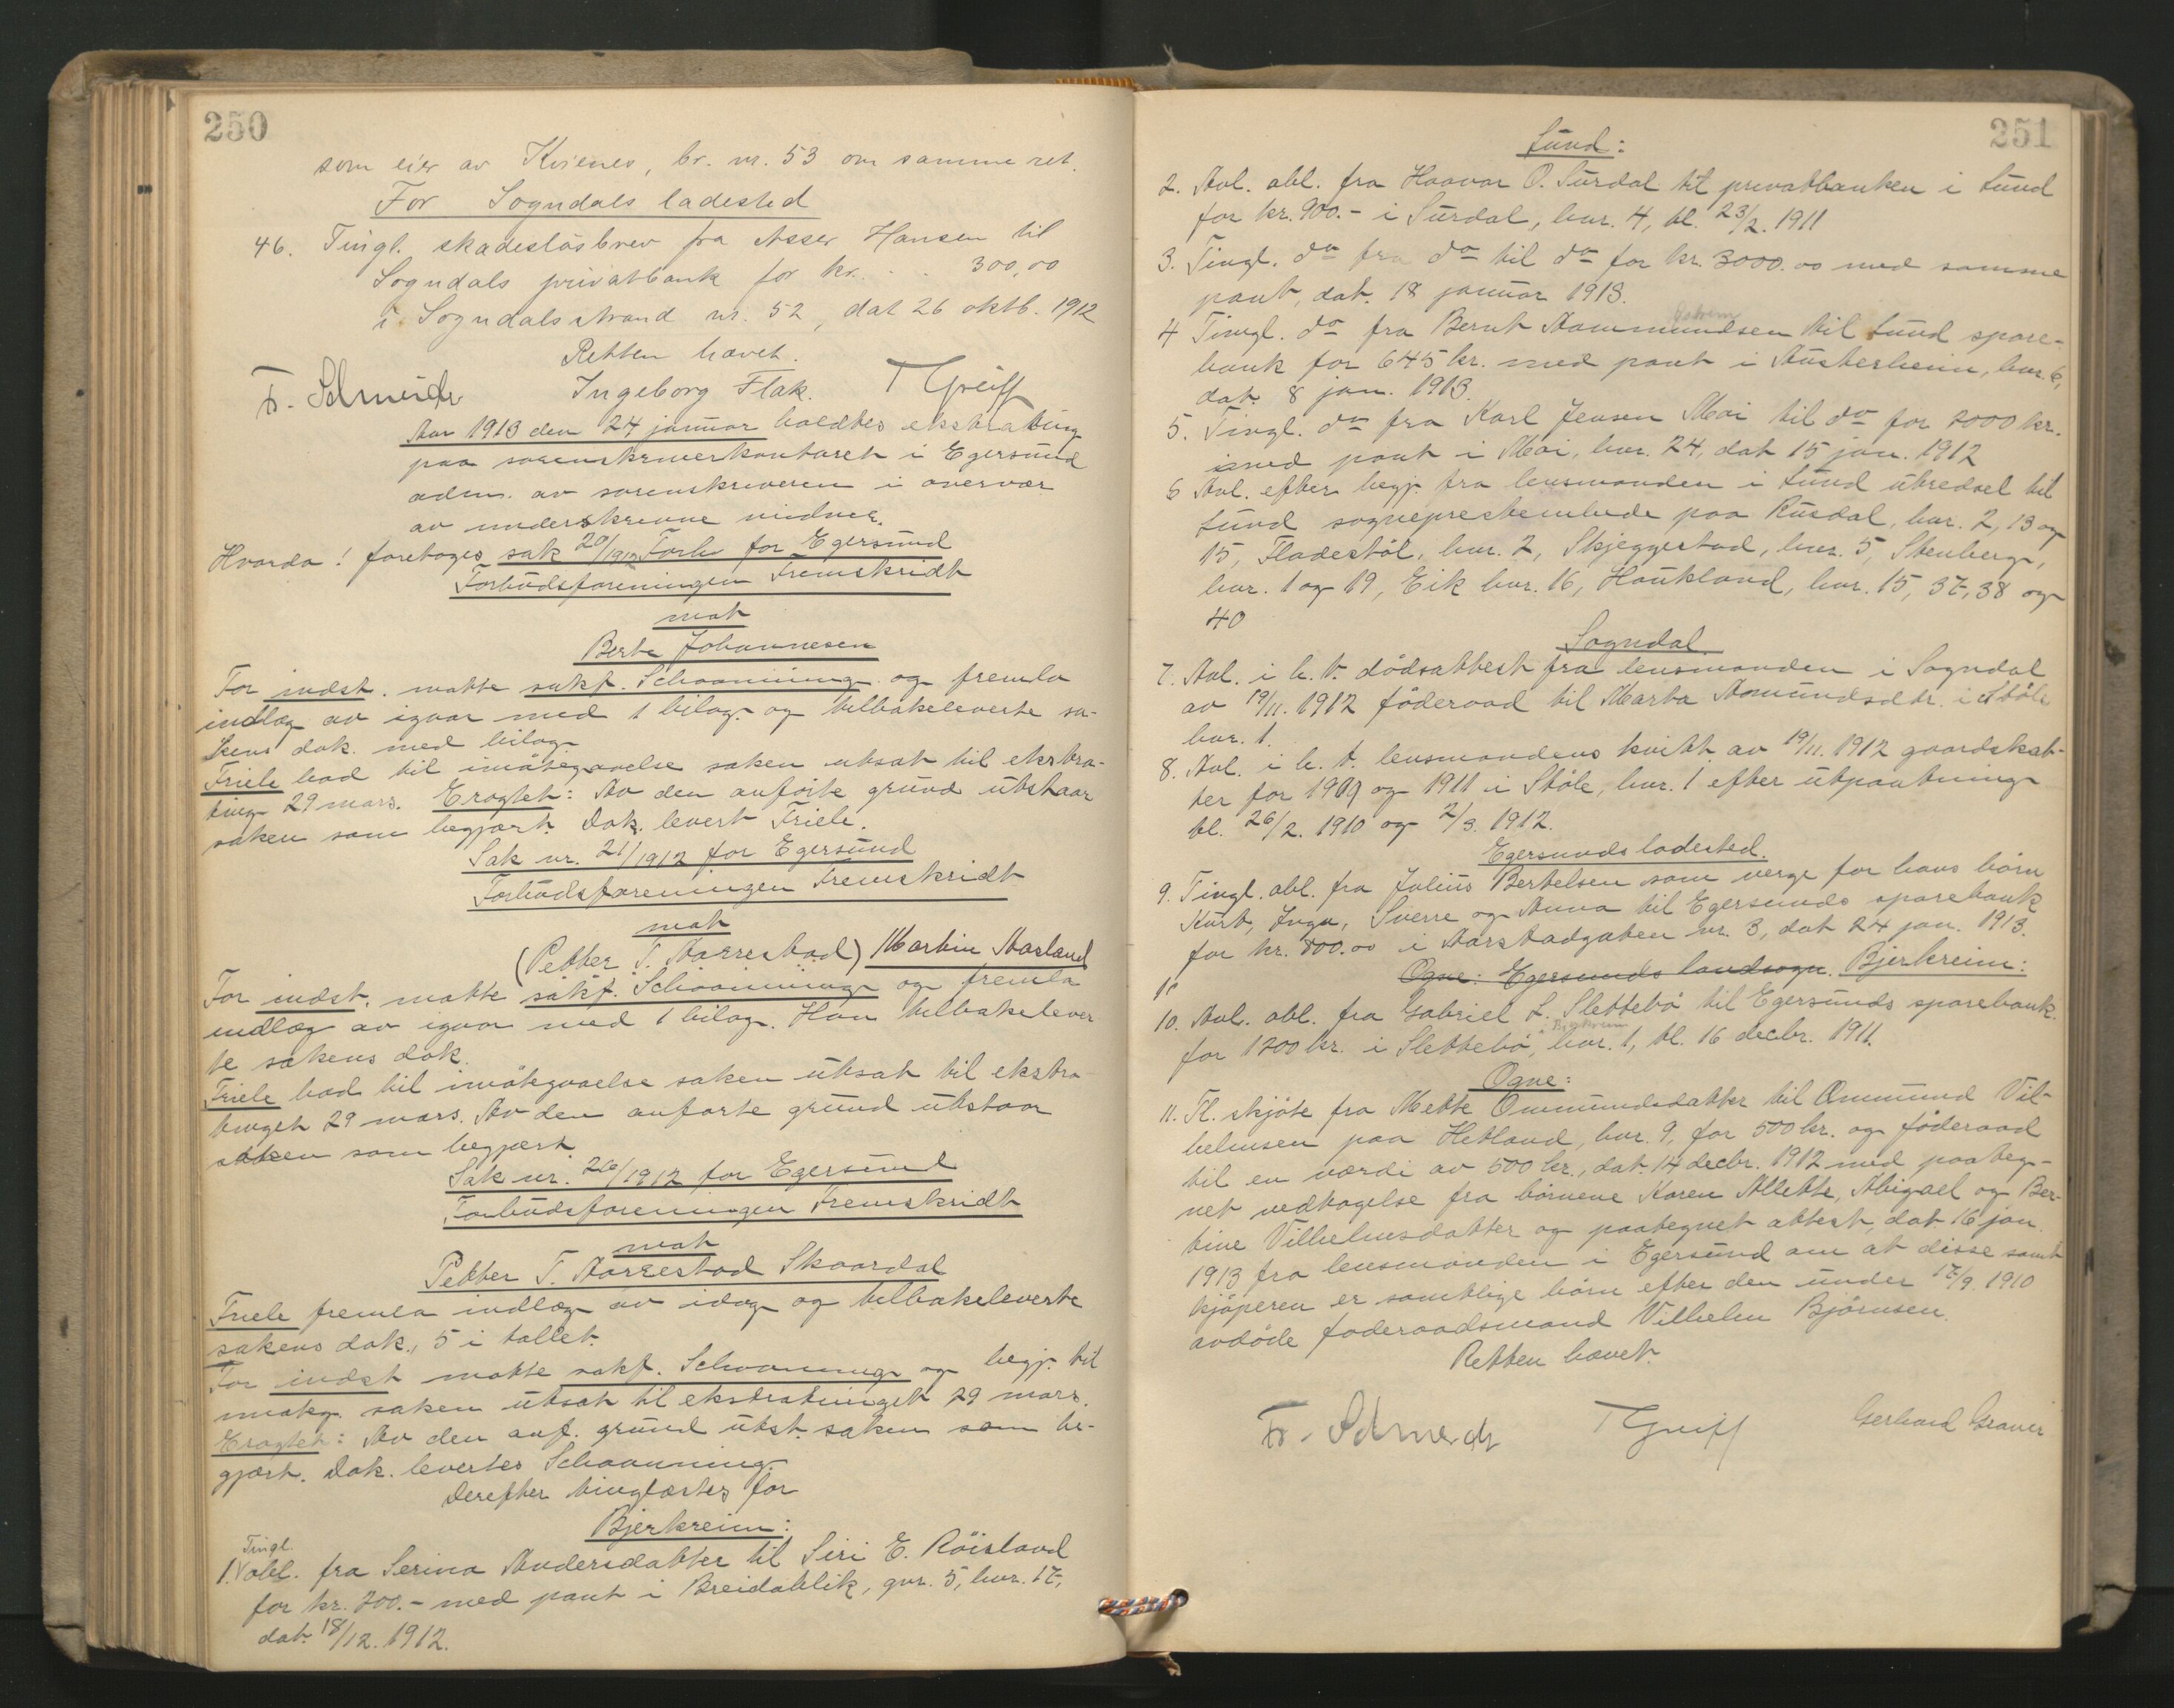 250
som eier av Kvienes, br. nr. 53 om samme ret.
For Sogndals ladested
46. Tingl. skadesløsbrev fra Asser Hansen til
Sogndals privatbank for kr. . . 300,00
i Sogndalsstrand nr. 52, dat 26 oktb. 1912
Retten hævet.
Fr. Schneider Ingeborg Flak. T Greiff
Aar 1913 den 24 januar holdtes ekstrating
paa sorenskriverkontoret i Egersund
adm. av sorenskriveren i overvær
av underskrevne vidner.
Hvorda! foretoges sak 20/1912 Forh for Egersund
Forbudsforeningen Fremskridt
mot
Berte Johannesen
For indst. møtte sakf. Schaanning og fremla
indlæg av igaar med 1 bilag og tilbakeleverte sa-
kens dok. med bilag.
Friele bad til imøtegaaelse saken utsat til ekstra-
ting 29 mars. Eragtet: Av den anførte grund utstaar
saken som begjært. Dok. levert Friele.
Sak nr. 21/1912 for Egersund
Forbudsforeningen Fremskridt
mot
(Petter T. Aarrestad) Martin Aasland
For indst. møtte sakf. Schaanning og fremla
indlæg av igaar med 1 bilag. Han tilbakelever
te sakens dok.
Friele bad til imøtegaaelse saken utsat til ekstra
tinget 29 mars. Av den anførte grund utstaar
saken som begjært.
Sak nr. 26/1912 for Egersund
Forbudsforeningen Fremskridt
mot
Petter T. Aarrestad Skaardal
Friele fremla indlæg av idag og tilbakeleverte
sakens dok., 5 i tallet.
For indst møtte sakf. Schaanning og begj. til
imøteg. saken utsat til ekstratinget 29 mars.
Eragtet: Av den anf. grund utst. saken som be-
gjært. Dok. levertes Schaanning.
Derefter tinglæstes for
Bjerkreim:
Tingl.
1. obl. fra Serina Andersdatter til Siri E. Röisland
for kr. 200.- med pant i Breidablik, gnr. 5, bnr. 17,
dat. 18/12. 1912.
251
Lund:
2. Avl. obl. fra Haavar O. Surdal til privatbanken i Lund
for kr. 900.- i Surdal, bnr. 4, tl. 23/2. 1911
3. Tingl. do fra do til do for kr. 3000.00 med samme
pant, dat. 18 januar 1913.
4 Tingl. do fra Bernt Aammundsen til Lund spare-
bank for 645 kr. med pant i Austerheim, bnr. 6,
dat. 8 jan. 1913.
5. Tingl. do fra Karl Jensen Moi til do for 2000 kr.
med pant i Moi, bnr. 24, dat 15 jan. 1912
6 Avl. efter begj. fra lensmanden i Lund utredsel til
Lund sogneprestembede paa Rusdal, bnr. 2, 13 og
15, Fladestöl, bnr. 2, Skjeggestad, bnr. 5, Stenberg,
bnr. 1 og 19, Eik bnr. 16, Haukland, bnr. 15, 37, 38 og
40
Sogndal.
7. Avl. i h. t. dödsattest fra lensmanden i Sogndal
av 19/11. 1912 föderaad til Marta Aamundsdtr. i Stöle
bnr. 1.
8. Avl. i h. t. lensmandens kvitt. av 19/11. 1912 gaardskat-
ter for 1909 og 1911 i Stöle, bnr. 1 efter utpantning
tl. 26/2. 1910 og 2/3. 1912.
Egersunds ladested.
9. Tingl. obl. fra Julius Bertelsen som verge for hans börn
Kurt, Inga, Sverre og Anna til Egersunds sparebank
for kr. 800.00 i Aarstadgaten nr. 3, dat 24 jan. 1913.
Ogne: Egersunds landsogn. Bjerkreim:
10. Avl. obl. fra Gabriel L. Slettebö til Egersunds sparebank
for 1200 kr. i Slettebö, bnr. 1, tl. 16 decbr. 1911.
Ogne:
11. Tl. skjöte fra Mette Ommundsdatter til Ommund Vil-
helmsen paa Hetland, bnr. 9, for 500 kr. og föderaad
til en værdi av 500 kr., dat. 14 decbr. 1912 med paateg-
net vedtagelse fra börnene Karen Mette, Abigael og Ber-
tine Vilhelmsdatter og paategnet attest, dat 16 jan.
1913 fra lensmanden i Egersund om at disse samt
kjöperen er samtlige börn efter den under 17/9. 1910
avdöde föderaadsmand Vilhelm Björnsen.
Retten hævet.
Fr. Schneider T Greiff Gerhard Graver